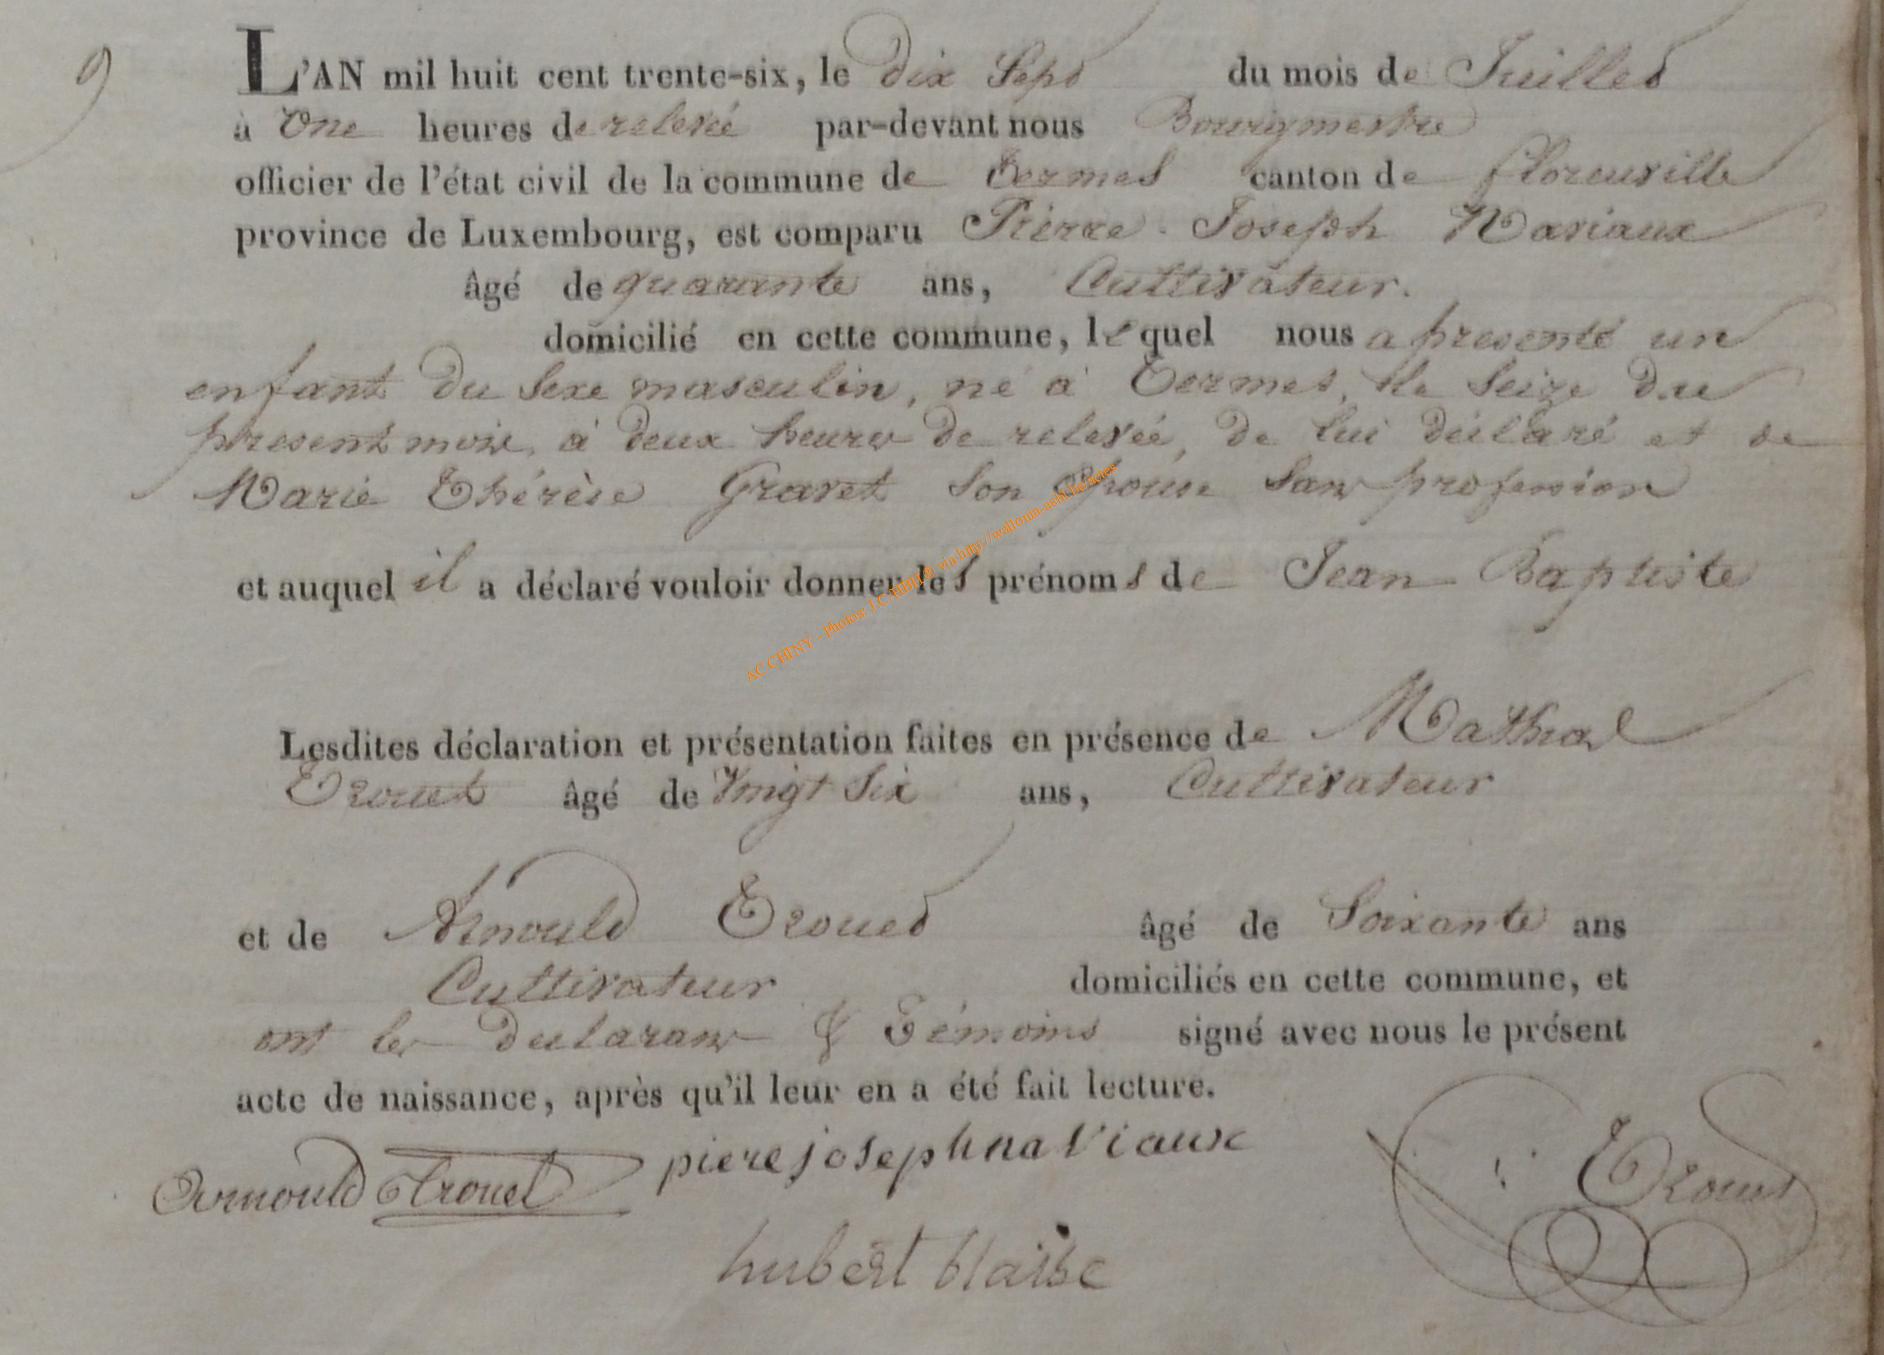 9
L'AN mil huit cent trente-six, le dix Sept du mois de Juillet
à One heures de relevé par-devant nous Bourgmestre
officier de l'état civil de la commune de Termes canton de florenville
province de Luxembourg, est comparu Pierre Joseph Naviaux
âgé de quarante ans, Cultivateur.
domicilié en cette commune, lequel nous a presenté un
enfant du Sexe masculin, né à Termes, le Seize du
present mois, à deux heures de relevée, de lui déclaré et de
Marie Thérèse Gravet Son Epouse Sans profession
et auquel il a déclaré vouloir donner les prénoms de Jean Baptiste
Lesdites déclaration et présentation faites en présence de
Trouet âgé de Vingt Six ans, Cultivateur
et de Arnould Trouet âgé de Soixante ans
Cultivateur domiciliés en cette commune, et
ont les declarans & Témoins signé avec nous le présent
acte de naissance, après qu'il leur en a été fait lecture.
Arnould Trouet piere joseph naviaux Trouet
hubert blaise
AC CHINY - Photos J.C.